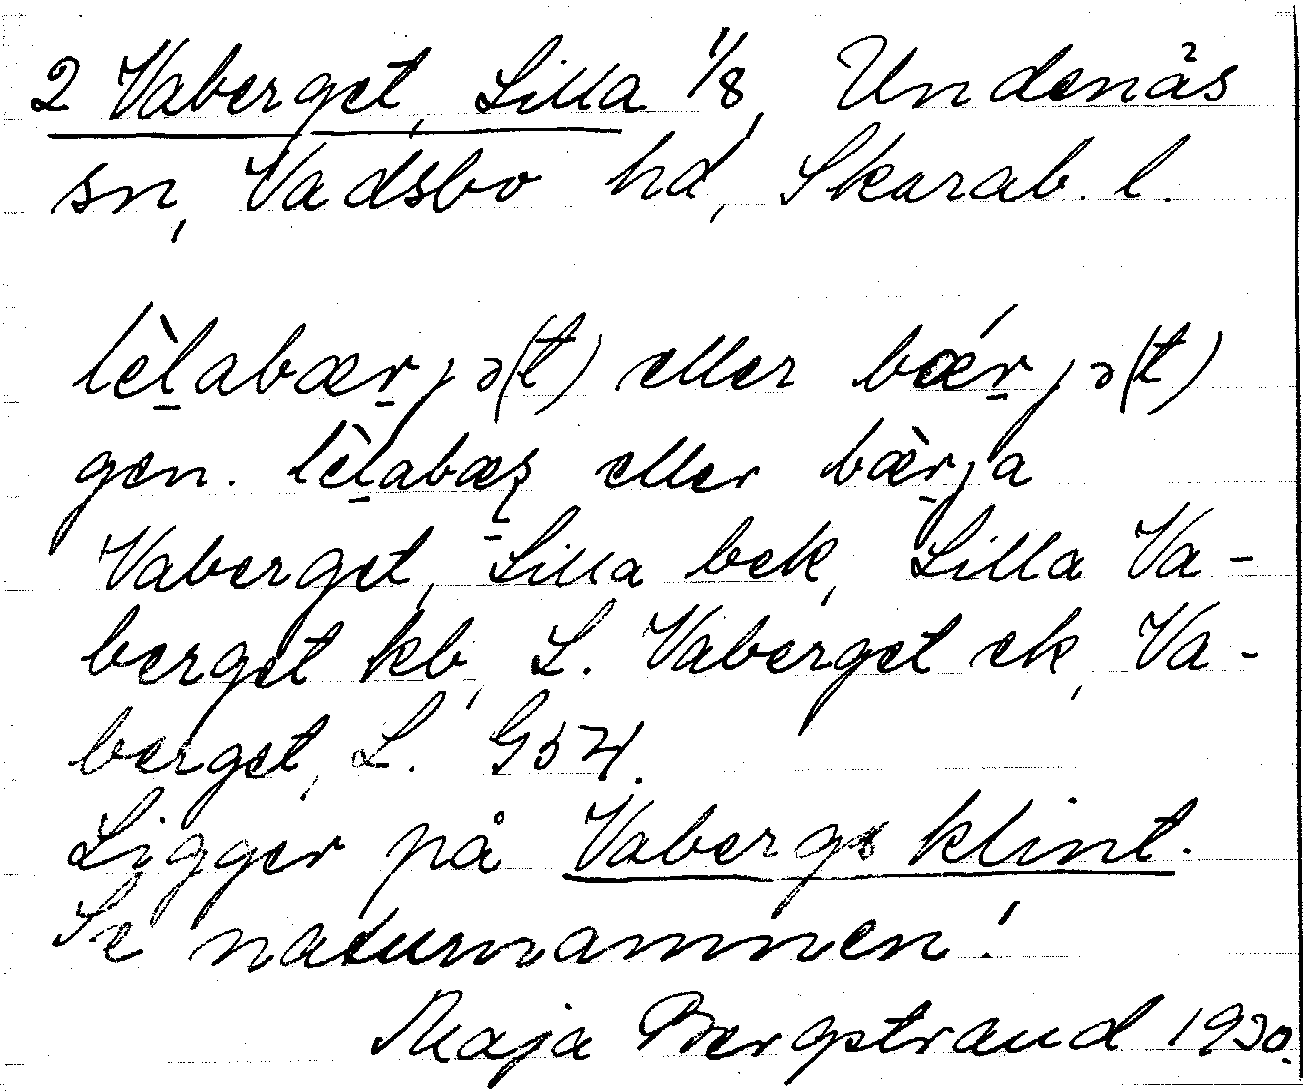 2 Vaberget, Lilla 1/8, Undenäs
sn, Vadsbo hd, Skarab. l.
lèḻabæṟjə(t) eller bǽṟjə(t)
gen. lèḻabæʂ eller bæ̀ṟja
Vaberget, Lilla bek, Lilla Va-
berget kb, L. Vaberget ek, Va-
berget, L. G54.
Ligger på Vabergs klint.
Se naturnamnen!
Maja Bergstrand 1930.